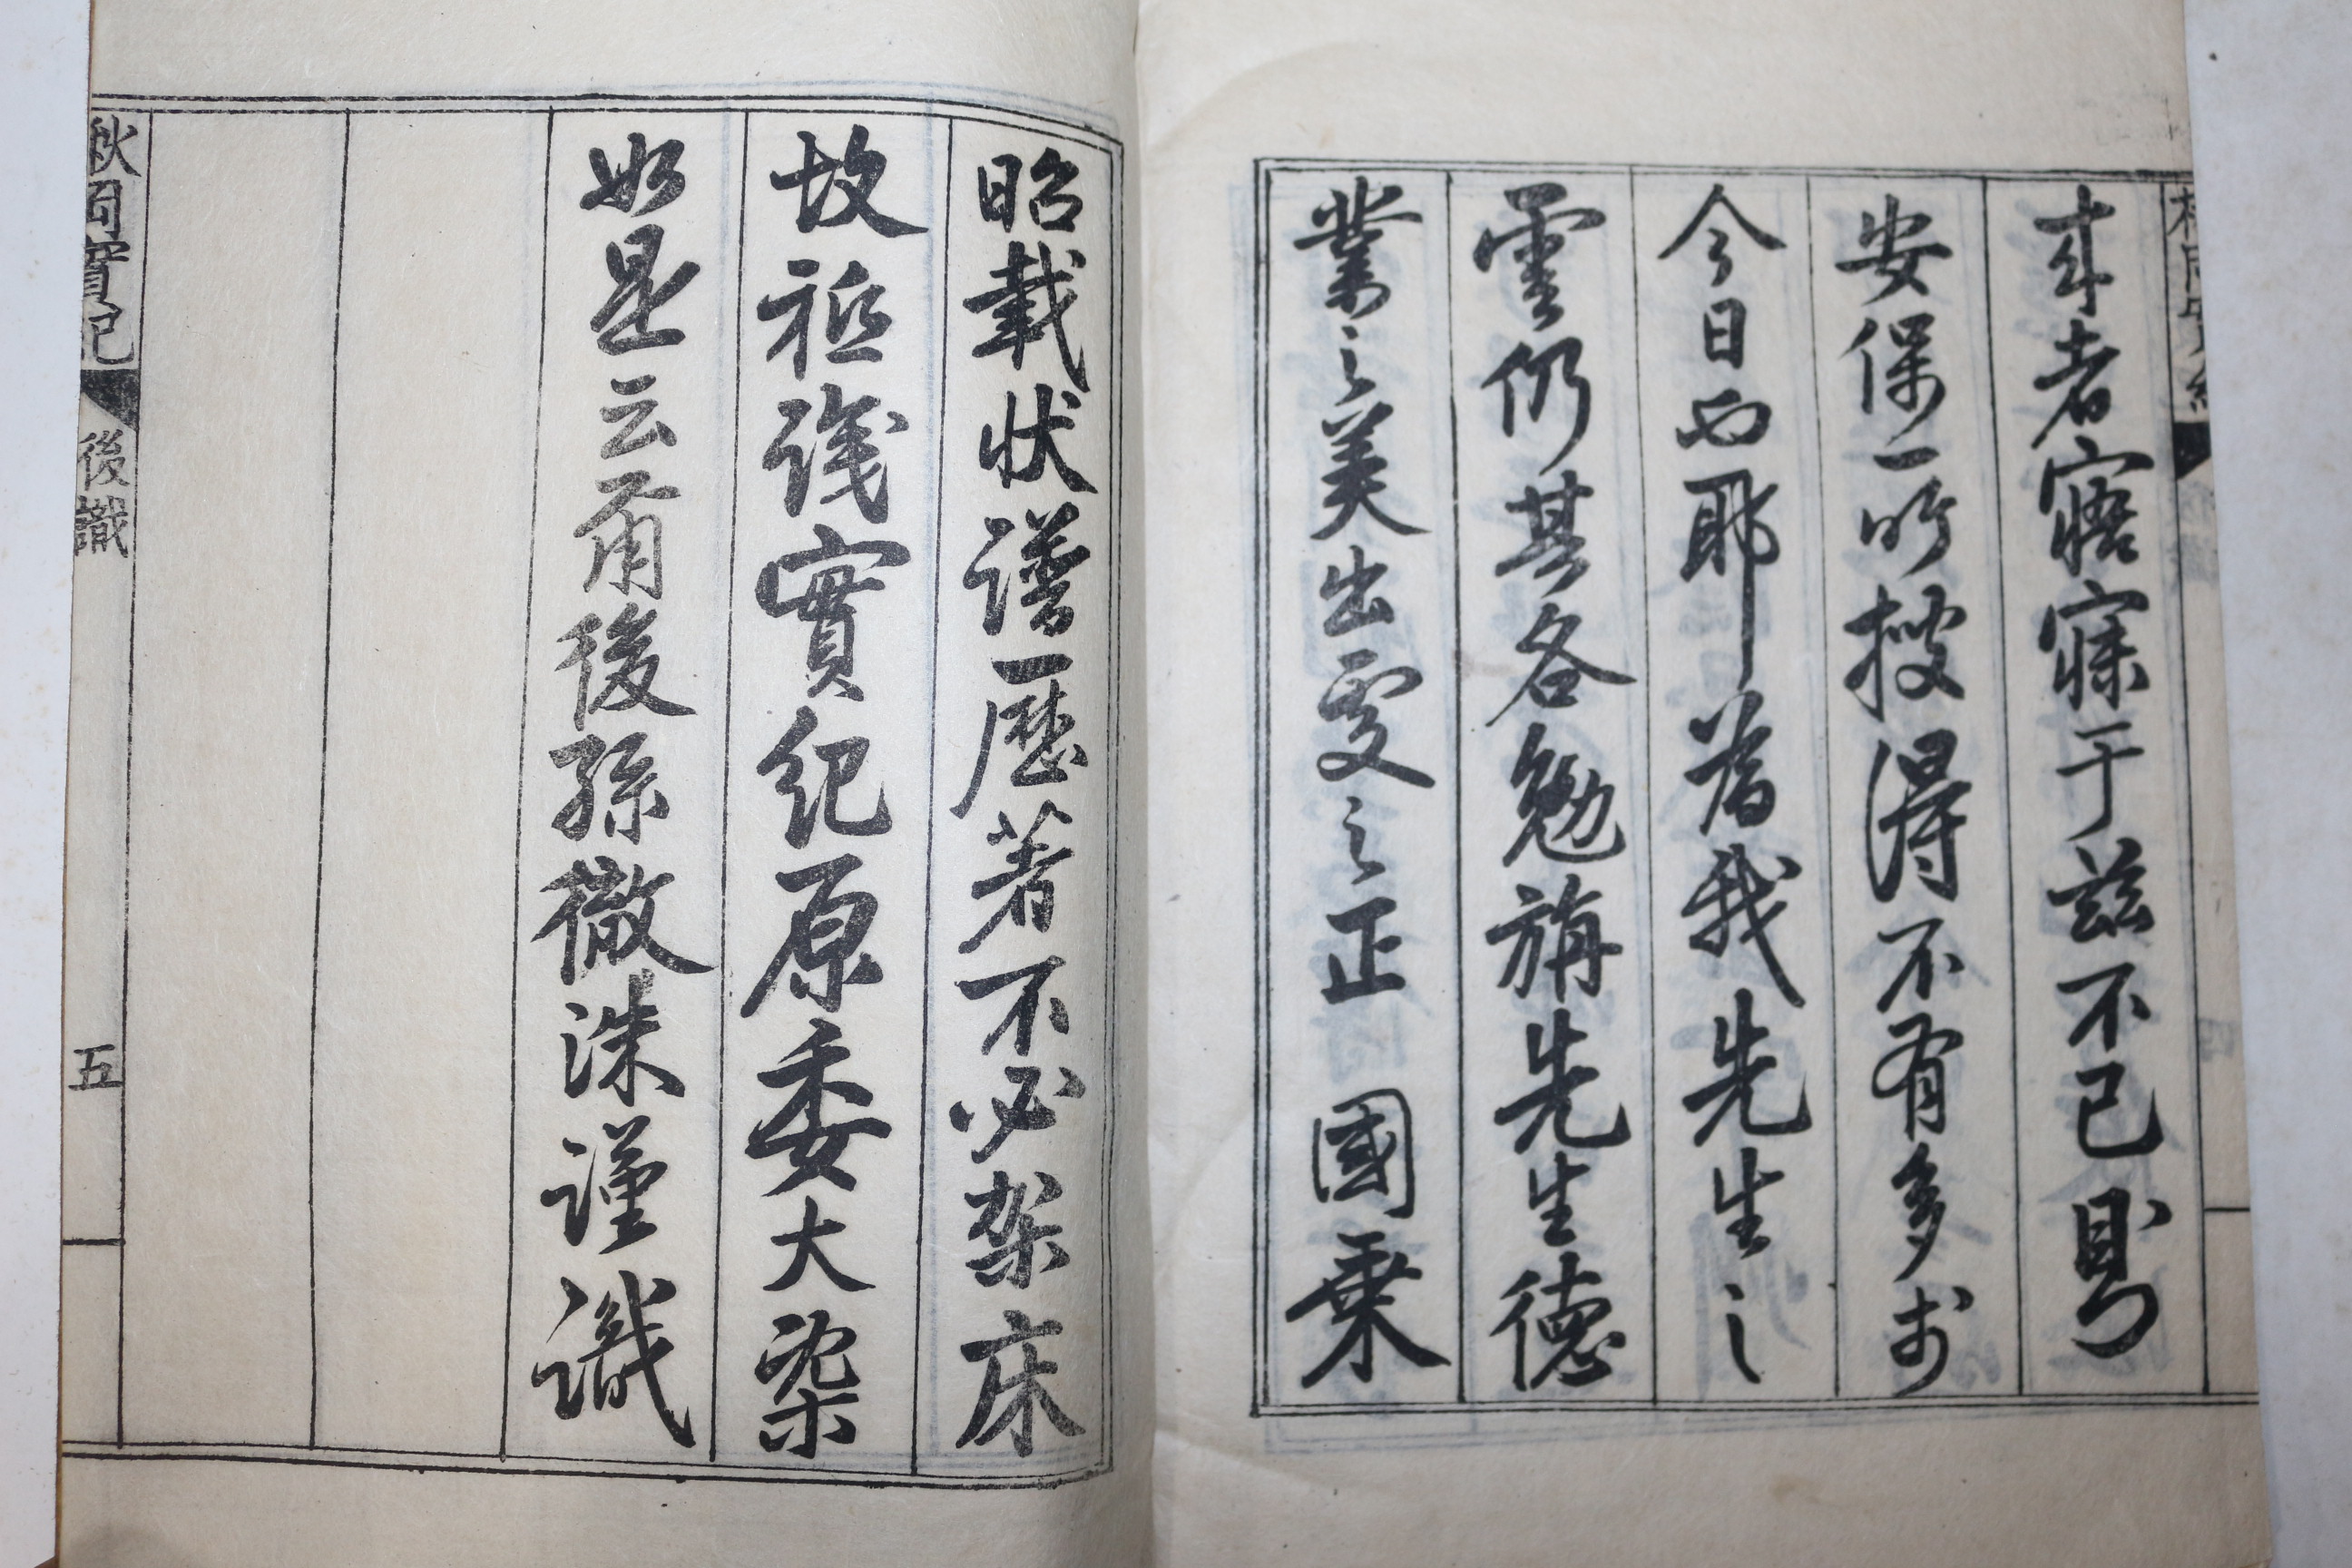 才者寤寐于茲不已則
安保一所搜得不有多於
今日也耶若我先生之
雲仍其各勉旃先生德
業之美出處之正國乗
昭載狀譜歷著不必架床
故祗識實紀原委大槩
如是云爾後孫徹洙謹識
後識
五